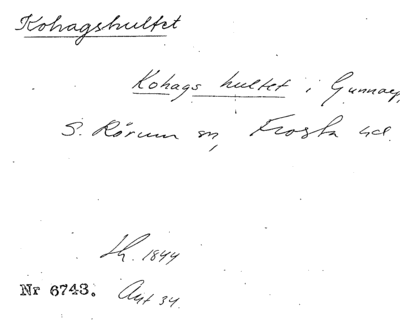 Kohagshultet
Kohags hultet i Gunnarp,
S. Rörum sn, Frosta hd.
Lh. 1844
Nr 6743. Akt 34.